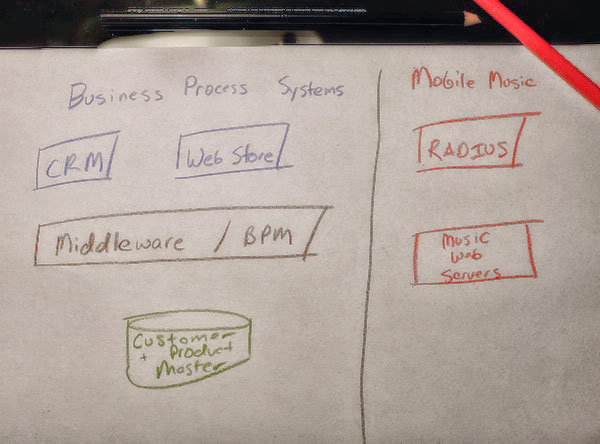 Business Process Systems
CRM
Web Store
Middleware / BPM
Customer
+ Product
Master
Mobile Music
RADIUS
Music
Web
Servers